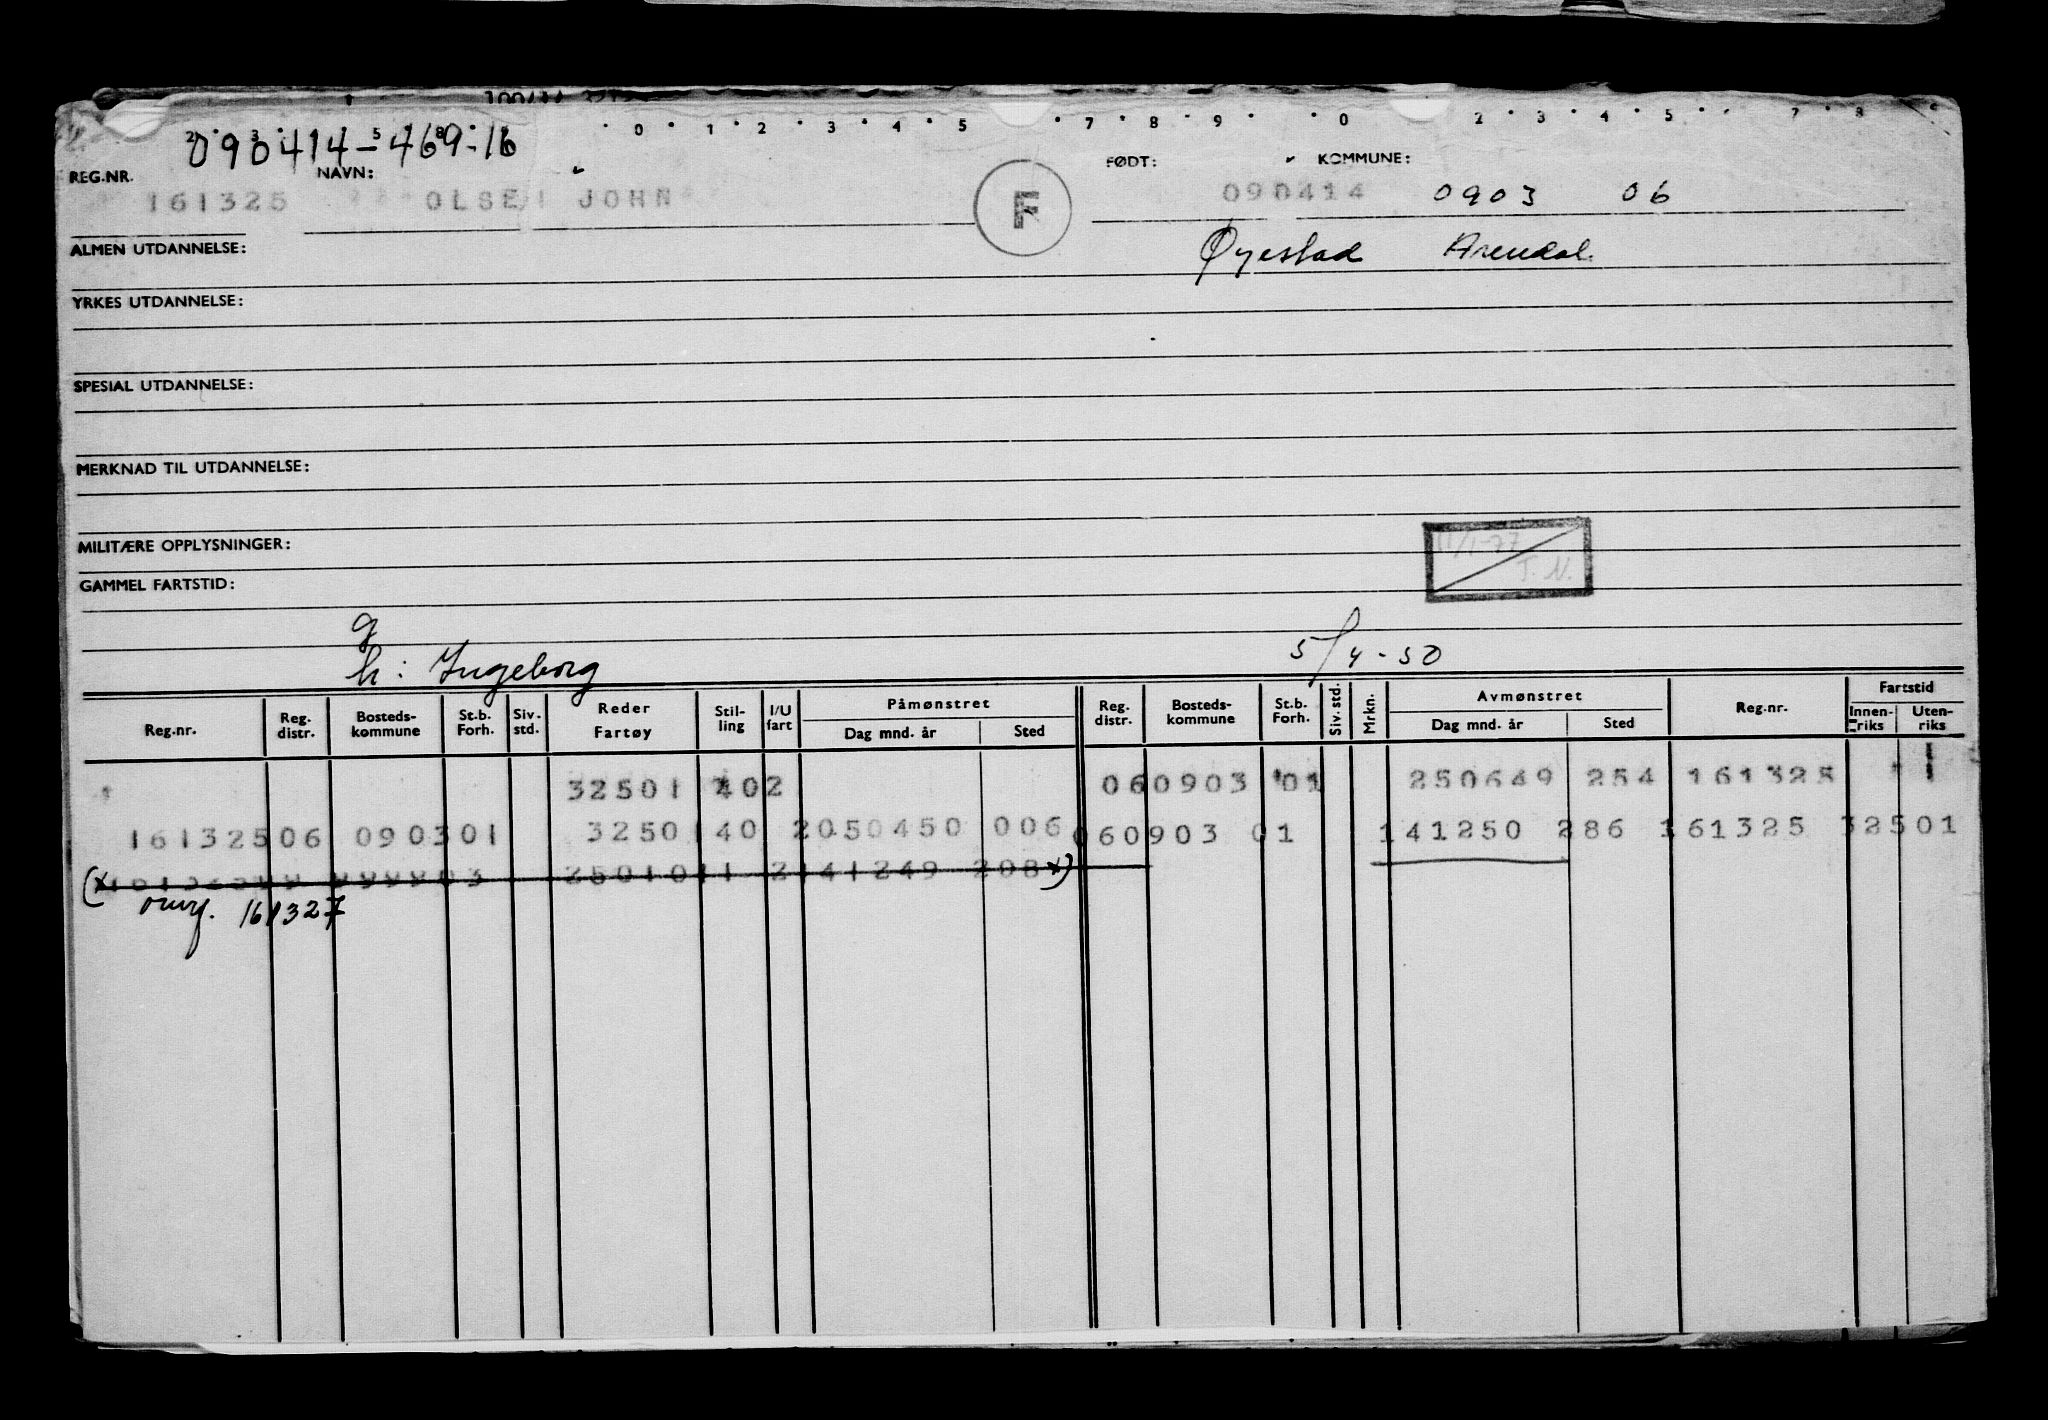 0 1 2 3 4 5 7 8 9 0 2 3 4 5 7 8 9
090414-46916
REG.NR. NAVN: FØDT: KOMMUNE:
161325 OLSEN JOHN F 090414 0903 06
ALMEN UTDANNELSE: Øyestad Arendal.
YRKES UTDANNELSE:
SPESIAL UTDANNELSE:
MERKNAD TIL UTDANNELSE:
MILITÆRE OPPLYSNINGER: 11/1-77
T. N.
GAMMEL FARTSTID:
g
h: Ingeborg 5/4-50
Reg.nr. Reg. distr. Bosteds-kommune St.b. Forh. Siv. std. Reder Fartøy Stil-ling I/U fart Påmønstret Dag mnd. år Sted Reg. distr. Bosteds-kommune St.b. Forh. Siv. std. Mrkn. Avmønstret Dag mnd. år Sted Reg.nr. Fartstid Innen-riks Uten-riks
32501 402 060903 01 250649 254 161325
161325 06 0903 01 32501 40 2 050450 006 060903 01 141250 286 161325 32501
(x 250101 1 2 141249 208 x)
161327